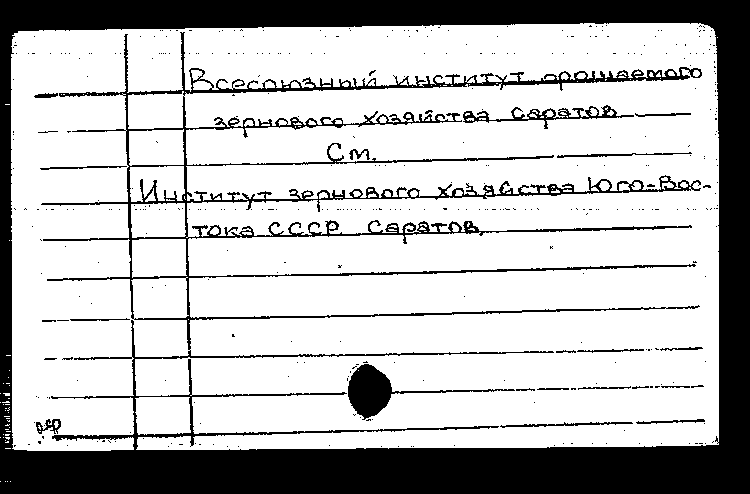 Всесоюзный институт орошаемого
зернового хозяйства. Саратов
См.
Институт зернового хозяйства Юго-Вос-
тока СССР. Саратов.